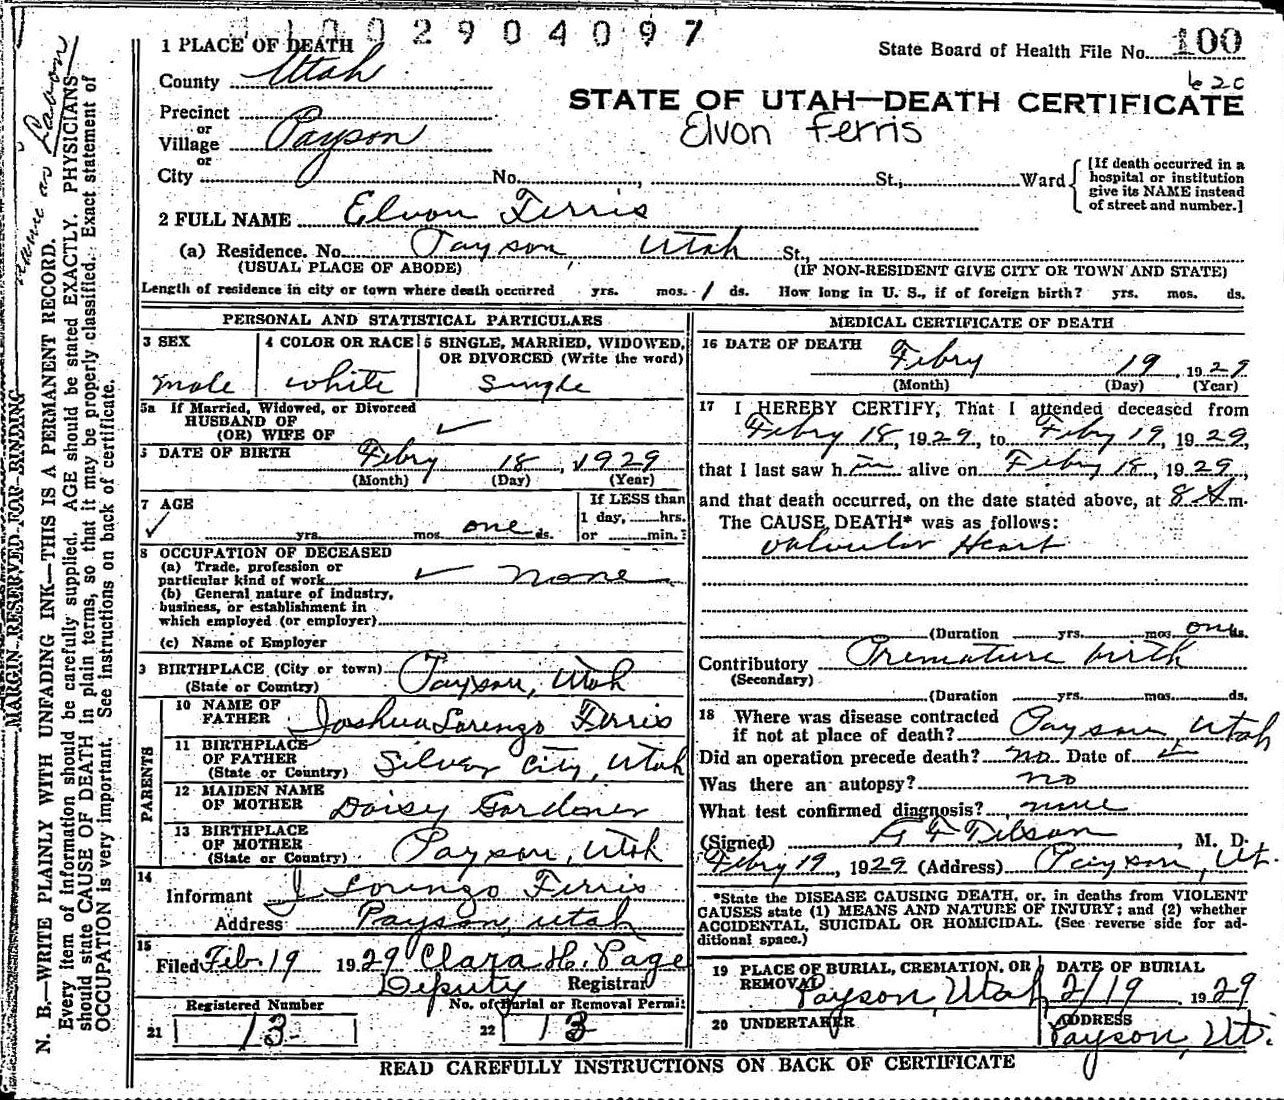 1002904097
State Board of Health File No. 100
620
STATE OF UTAH—DEATH CERTIFICATE
Elvon Ferris
1 PLACE OF DEATH
County Utah
Precinct
or
Village Payson
or
City No. , St., Ward
[If death occurred in a
hospital or institution
give its NAME instead
of street and number.]
2 FULL NAME Elvon Ferris
(a) Residence. No. Payson, Utah St.,
(USUAL PLACE OF ABODE) (IF NON-RESIDENT GIVE CITY OR TOWN AND STATE)
Length of residence in city or town where death occurred yrs. mos. 1 ds. How long in U. S., if of foreign birth? yrs. mos. ds.
PERSONAL AND STATISTICAL PARTICULARS
3 SEX 4 COLOR OR RACE 5 SINGLE, MARRIED, WIDOWED,
OR DIVORCED (Write the word)
male white single
5a If Married, Widowed, or Divorced
HUSBAND OF
(OR) WIFE OF ✓
DATE OF BIRTH Febry 18, 1929
(Month) (Day) (Year)
7 AGE If LESS than
1 day, hrs.
✓ yrs. mos. one ds. or min.?
8 OCCUPATION OF DECEASED
(a) Trade, profession or
particular kind of work ✓ none
(b) General nature of industry,
business, or establishment in
which employed (or employer)
(c) Name of Employer
9 BIRTHPLACE (City or town) Payson, Utah
(State or Country)
PARENTS
10 NAME OF
FATHER Joshua Lorenzo Ferris
11 BIRTHPLACE
OF FATHER Silver City, Utah
(State or Country)
12 MAIDEN NAME
OF MOTHER Daisy Gardner
13 BIRTHPLACE
OF MOTHER Payson, Utah
(State or Country)
14
Informant J Lorenzo Ferris
Address Payson, Utah
15
Filed Feb. 19 1929 Clara H. Page
Deputy Registrar
Registered Number No. of Burial or Removal Permit
21 13 22 13
MEDICAL CERTIFICATE OF DEATH
16 DATE OF DEATH Febry 19, 1929
(Month) (Day) (Year)
17 I HEREBY CERTIFY, That I attended deceased from
Febry 18, 1929, to Febry 19, 1929,
that I last saw h im alive on Febry 18, 1929,
and that death occurred, on the date stated above, at 8 A m.
The CAUSE DEATH* was as follows:
Valvular Heart
(Duration yrs. mos. one ds.
Contributory Premature birth
(Secondary)
(Duration yrs. mos. ds.
18 Where was disease contracted
if not at place of death? Payson, Utah
Did an operation precede death? no Date of
Was there an autopsy? no
What test confirmed diagnosis? none
(Signed) , M. D.
Febry 19, 1929 (Address) Payson, Ut.
*State the DISEASE CAUSING DEATH, or, in deaths from VIOLENT
CAUSES state (1) MEANS AND NATURE OF INJURY; and (2) whether
ACCIDENTAL, SUICIDAL OR HOMICIDAL. (See reverse side for ad-
ditional space.)
19 PLACE OF BURIAL, CREMATION, OR DATE OF BURIAL
REMOVAL Payson, Utah 2/19 1929
20 UNDERTAKER ADDRESS
Payson, Ut.
READ CAREFULLY INSTRUCTIONS ON BACK OF CERTIFICATE
MARGIN RESERVED FOR BINDING
N. B.—WRITE PLAINLY WITH UNFADING INK—THIS IS A PERMANENT RECORD.
Every item of information should be carefully supplied. AGE should be stated EXACTLY. PHYSICIANS
should state CAUSE OF DEATH in plain terms, so that it may be properly classified. Exact statement of
OCCUPATION is very important. See instructions on back of certificate.